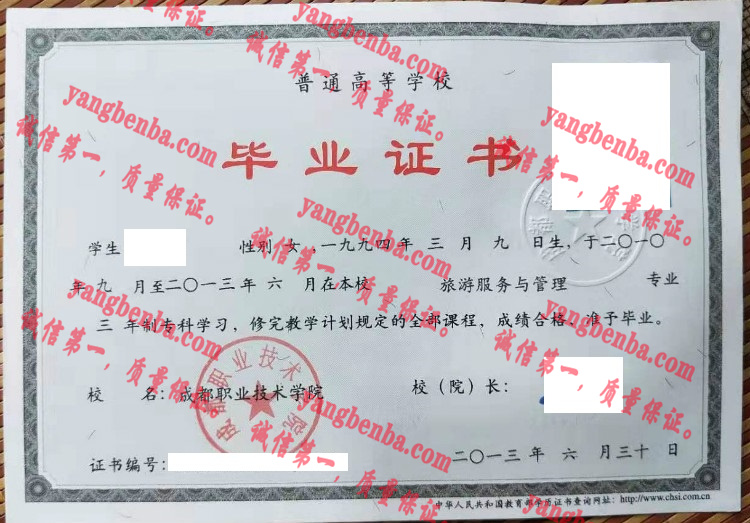 普通高等学校
毕业证书
学生 性别 女 ,一九九四年 三 月 九 日生,于二〇一〇
年 九 月至二〇一三年 六 月在本校 旅游服务与管理 专业
三 年制专科学习,修完教学计划规定的全部课程,成绩合格,准予毕业。
校 名:成都职业技术学院 校(院)长:
成都职业技术学院
证书编号: 二〇一三年 六 月三十日
中华人民共和国教育部学历证书查询网址:http://www.chsi.com.cn
yangbenba.com
诚信第一,质量保证。
yangbenba.com
诚信第一,质量保证。
yangbenba.com
诚信第一,质量保证。
yangbenba.com
诚信第一,质量保证。
yangbenba.com
诚信第一,质量保证。
yangbenba.com
诚信第一,质量保证。
yangbenba.com
诚信第一,质量保证。
yangbenba.com
诚信第一,质量保证。